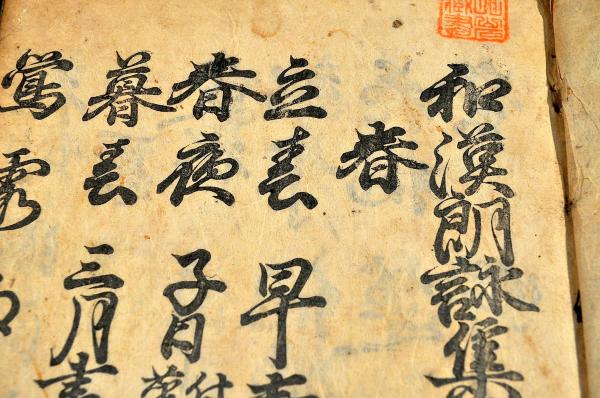 和漢朗詠集
春
立春 早春
春夜 子日 付
暮春 三月
鶯 霞